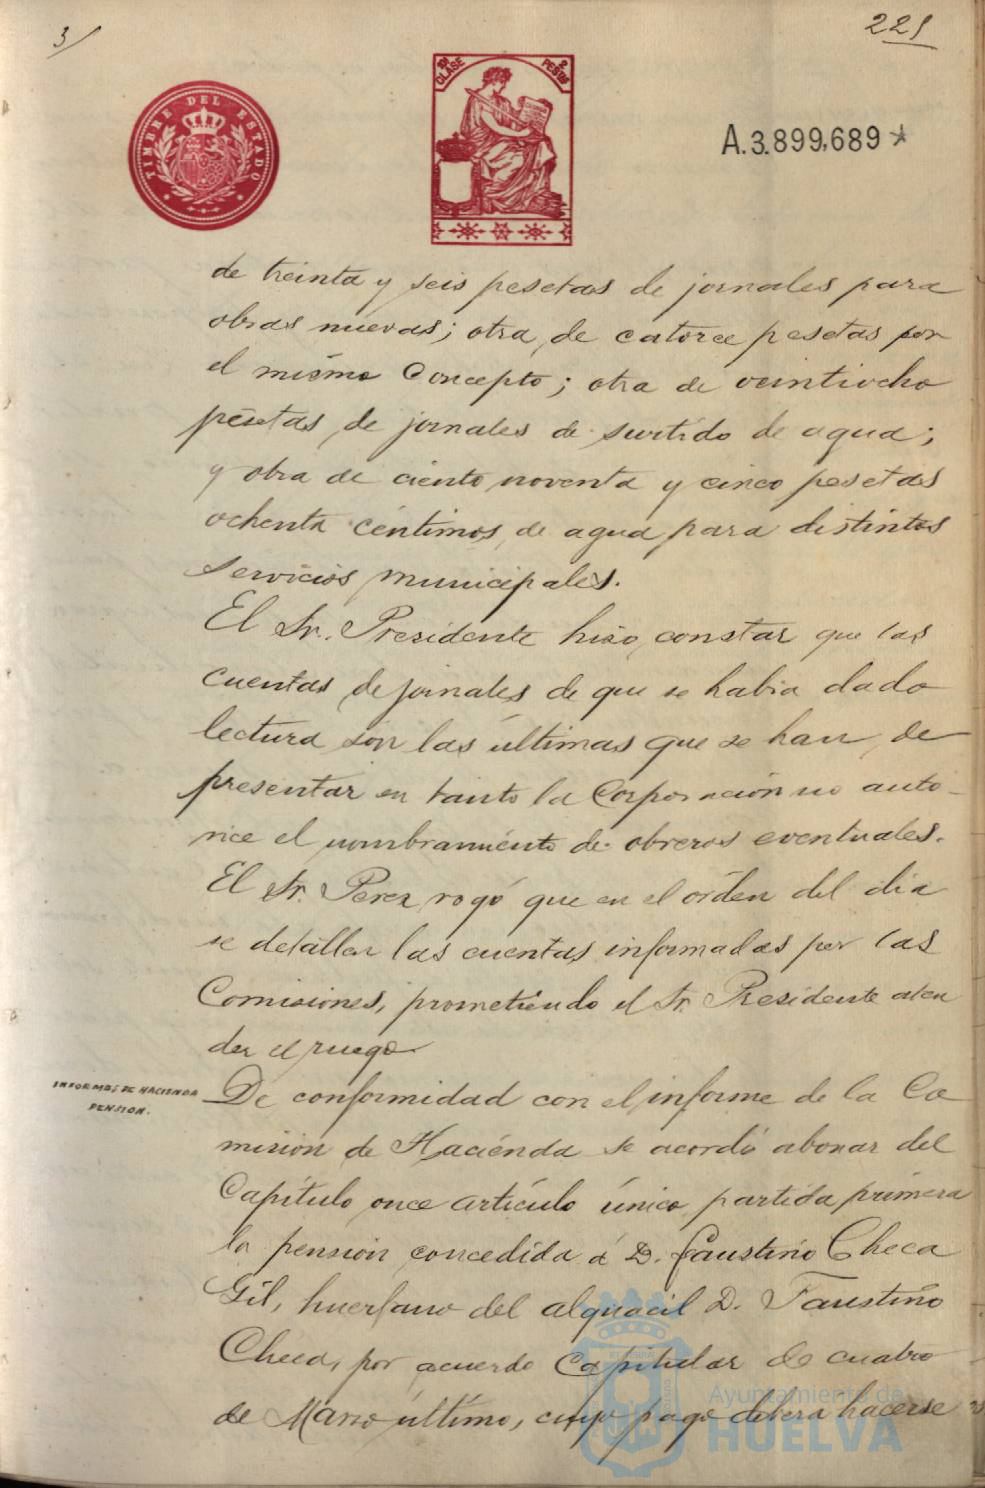 3/
221
TIMBRE DEL ESTADO
CLASE
2 PESETAS
A.3.899,689*
de treinta y seis pesetas de jornales para
obras nuevas; otra de catorce pesetas por
el mismo concepto; otra de veintiocho
pesetas de jornales de surtido de agua;
y otra de ciento noventa y cinco pesetas
ochenta céntimos de agua para distintos
servicios municipales.
El Sr. Presidente hizo constar que las
cuentas de jornales de que se habia dado
lectura son las últimas que se han de
presentar en tanto la Corporación no auto-
rice el nombramiento de obreros eventuales.
El Sr. Perez rogó que en el orden del dia
se detallen las cuentas informadas por las
Comisiones, prometiendo el Sr. Presidente aten
der el ruego.
INFORMES DE HACIENDA
PENSION.
De conformidad con el informe de la Co
misión de Hacienda se acordó abonar del
Capítulo once artículo único partida primera
la pensión concedida á D. Faustino Checa
Gil, huerfano del alguacil D. Faustino
Checa, por acuerdo Capitular de cuatro
de Marzo último, cuyo pago deberá hacerse
Ayuntamiento de
HUELVA